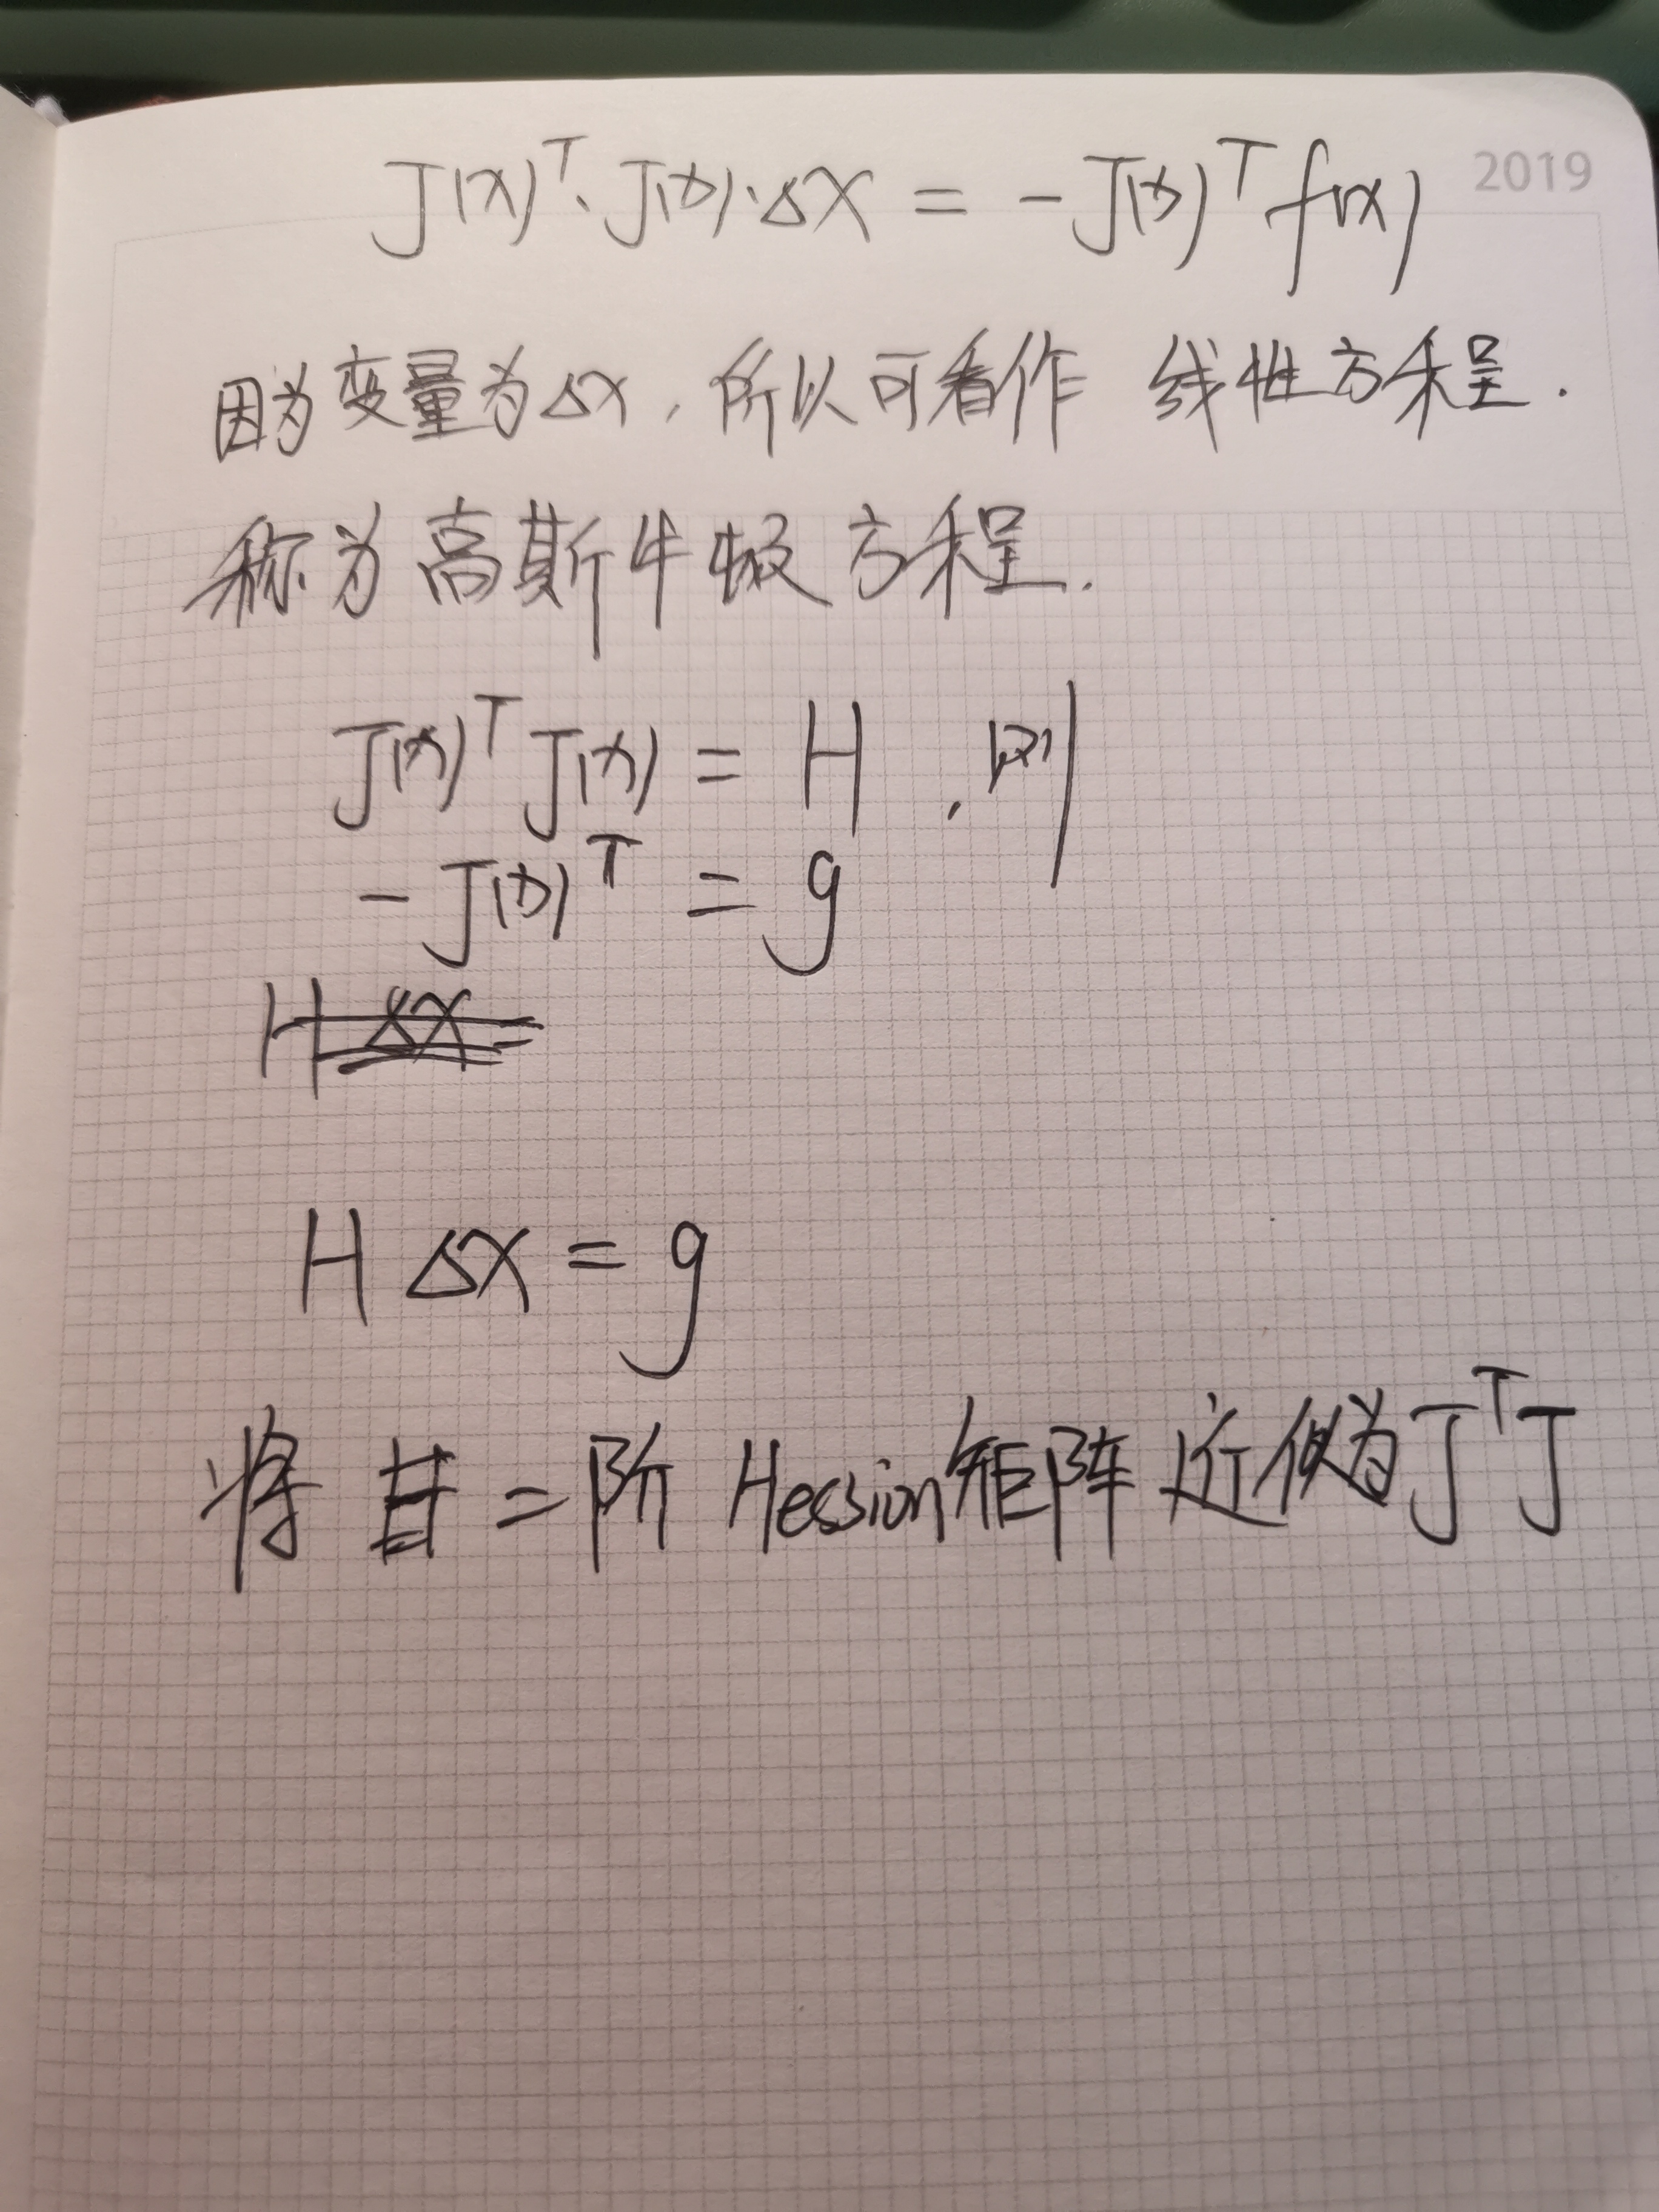 2019
J(x)ᵀ·J(x)·Δx = -J(x)ᵀ f(x)
因为变量为Δx,所以可看作 线性方程.
称为高斯牛顿方程.
J(x)ᵀ J(x) = H ,则
-J(x)ᵀ = g
H Δx =
H Δx = g
将 二阶 Hession矩阵 近似为 JᵀJ